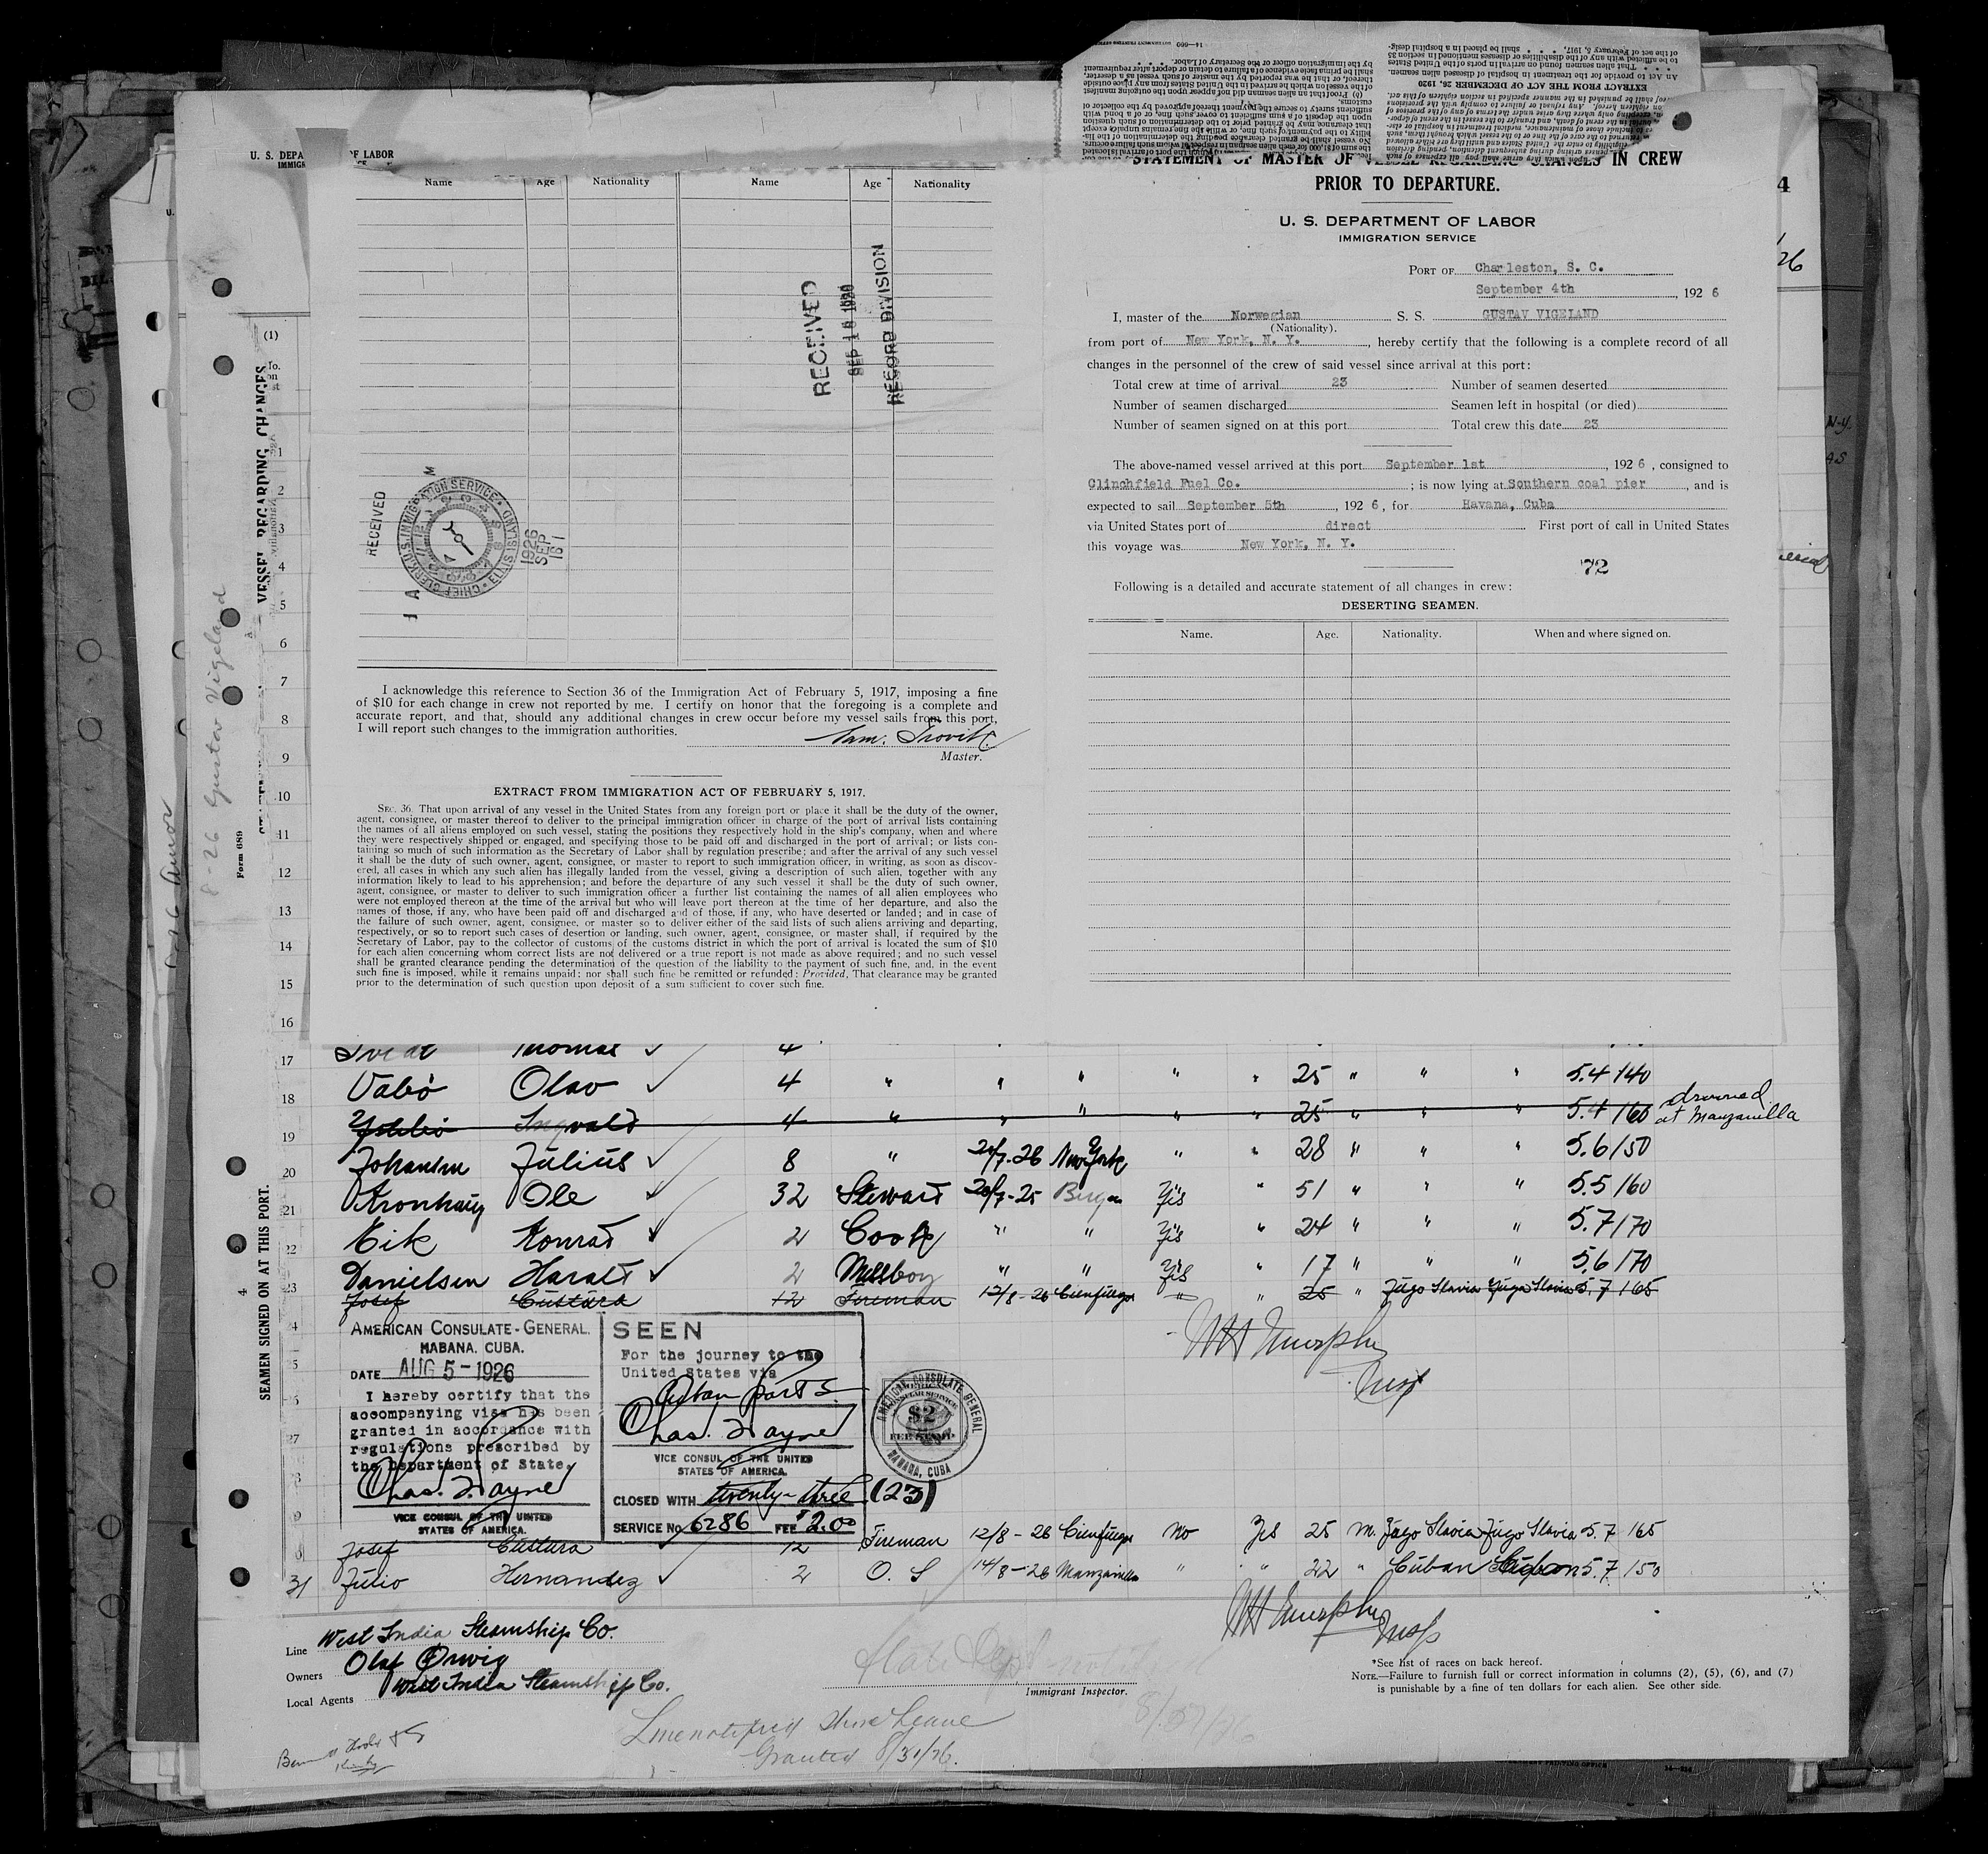 U. S. DEPA
OF LABOR
IMMIG
Name Age Nationality Name Age Nationality
RECEIVED
SEP 18 1930
RECORD DIVISION
RECEIVED
CHIEF CLERK U.S. IMMIGRATION SERVICE ELLIS ISLAND
1926
SEP
16 1
I acknowledge this reference to Section 36 of the Immigration Act of February 5, 1917, imposing a fine
of $10 for each change in crew not reported by me. I certify on honor that the foregoing is a complete and
accurate report, and that, should any additional changes in crew occur before my vessel sails from this port,
I will report such changes to the immigration authorities.
Master.
EXTRACT FROM IMMIGRATION ACT OF FEBRUARY 5, 1917.
SEC. 36. That upon arrival of any vessel in the United States from any foreign port or place it shall be the duty of the owner,
agent, consignee, or master thereof to deliver to the principal immigration officer in charge of the port of arrival lists containing
the names of all aliens employed on such vessel, stating the positions they respectively hold in the ship's company, when and where
they were respectively shipped or engaged, and specifying those to be paid off and discharged in the port of arrival; or lists con-
taining so much of such information as the Secretary of Labor shall by regulation prescribe; and after the arrival of any such vessel
it shall be the duty of such owner, agent, consignee, or master to report to such immigration officer, in writing, as soon as discov-
ered, all cases in which any such alien has illegally landed from the vessel, giving a description of such alien, together with any
information likely to lead to his apprehension; and before the departure of any such vessel it shall be the duty of such owner,
agent, consignee, or master to deliver to such immigration officer a further list containing the names of all alien employees who
were not employed thereon at the time of the arrival but who will leave port thereon at the time of her departure, and also the
names of those, if any, who have been paid off and discharged and of those, if any, who have deserted or landed; and in case of
the failure of such owner, agent, consignee, or master so to deliver either of the said lists of such aliens arriving and departing,
respectively, or so to report such cases of desertion or landing, such owner, agent, consignee, or master shall, if required by the
Secretary of Labor, pay to the collector of customs of the customs district in which the port of arrival is located the sum of $10
for each alien concerning whom correct lists are not delivered or a true report is not made as above required; and no such vessel
shall be granted clearance pending the determination of the question of the liability to the payment of such fine, and, in the event
such fine is imposed, while it remains unpaid; nor shall such fine be remitted or refunded: Provided, That clearance may be granted
prior to the determination of such question upon deposit of a sum sufficient to cover such fine.
EXTRACT FROM THE ACT OF DECEMBER 26, 1920
STATEMENT OF MASTER OF VESSEL REGARDING CHANGES IN CREW
PRIOR TO DEPARTURE.
U. S. DEPARTMENT OF LABOR
IMMIGRATION SERVICE
PORT OF Charleston, S. C.
September 4th, 1926
I, master of the Norwegian S. S. GUSTAV VIGELAND
(Nationality).
from port of New York, N. Y., hereby certify that the following is a complete record of all
changes in the personnel of the crew of said vessel since arrival at this port:
Total crew at time of arrival 23 Number of seamen deserted
Number of seamen discharged Seamen left in hospital (or died)
Number of seamen signed on at this port Total crew this date 23
The above-named vessel arrived at this port September 1st, 1926, consigned to
Clinchfield Fuel Co.; is now lying at Southern coal pier, and is
expected to sail September 5th, 1926, for Havana, Cuba
via United States port of direct First port of call in United States
this voyage was New York, N. Y.
72
Following is a detailed and accurate statement of all changes in crew:
DESERTING SEAMEN.
Name. Age. Nationality. When and where signed on.
(1)
VESSEL REGARDING CHANGES
Form 689
SEAMEN SIGNED ON AT THIS PORT.
8-26 Gustav Vigeland
1
2
3
4
5
6
7
8
9
10
11
12
13
14
15
16
17 Thomas 4
18 Vabö Olav 4 " " " " " 25 " " " 5.4 140
19 Ingvald 4 " " " " " 25 " " " 5.4 160 drowned at Manzanilla
20 Johansen Julius 8 " 26/7-26 New York " " 28 " " " 5.6 150
21 Kronhaug Ole 32 Stewart 20/7-25 Bergen Yes " 51 " " " 5.5 160
22 Eik Konrad 2 Cook " " Yes " 24 " " " 5.7 170
23 Danielsen Harald 2 Messboy " " Yes " 17 " " " 5.6 170
Josef Custura 12 Fireman 12/8-26 Cienfuegos " " 25 " Jugo Slavia Jugo Slavia 5.7 165
W H Murphy
Insp
AMERICAN CONSULATE-GENERAL.
HABANA, CUBA.
DATE AUG 5-1926
I hereby certify that the
accompanying visa has been
granted in accordance with
regulations prescribed by
the Department of State.
VICE CONSUL OF THE UNITED
STATES OF AMERICA.
SEEN
For the journey to the
United States via
Cuban ports
VICE CONSUL OF THE UNITED
STATES OF AMERICA.
CLOSED WITH twenty-three (23)
SERVICE No. 6286 FEE $2.00
AMERICAN CONSULATE GENERAL
HABANA, CUBA
$2
FEE STAMP
Josef Custura 12 Fireman 12/8-26 Cienfuegos No Yes 25 M. Jugo Slavia Jugo Slavia 5.7 165
31 Julio Hernandez 2 O. S 14/8-26 Manzanilla " " 22 " Cuban Cuban 5.7 150
W H Murphy
Insp
Line West India Steamship Co.
Owners Olaf Orvig
Local Agents West India Steamship Co.
Immigrant Inspector.
*See list of races on back hereof.
NOTE.—Failure to furnish full or correct information in columns (2), (5), (6), and (7)
is punishable by a fine of ten dollars for each alien. See other side.
Line notified Shore Leave
Granted 8/31/26.